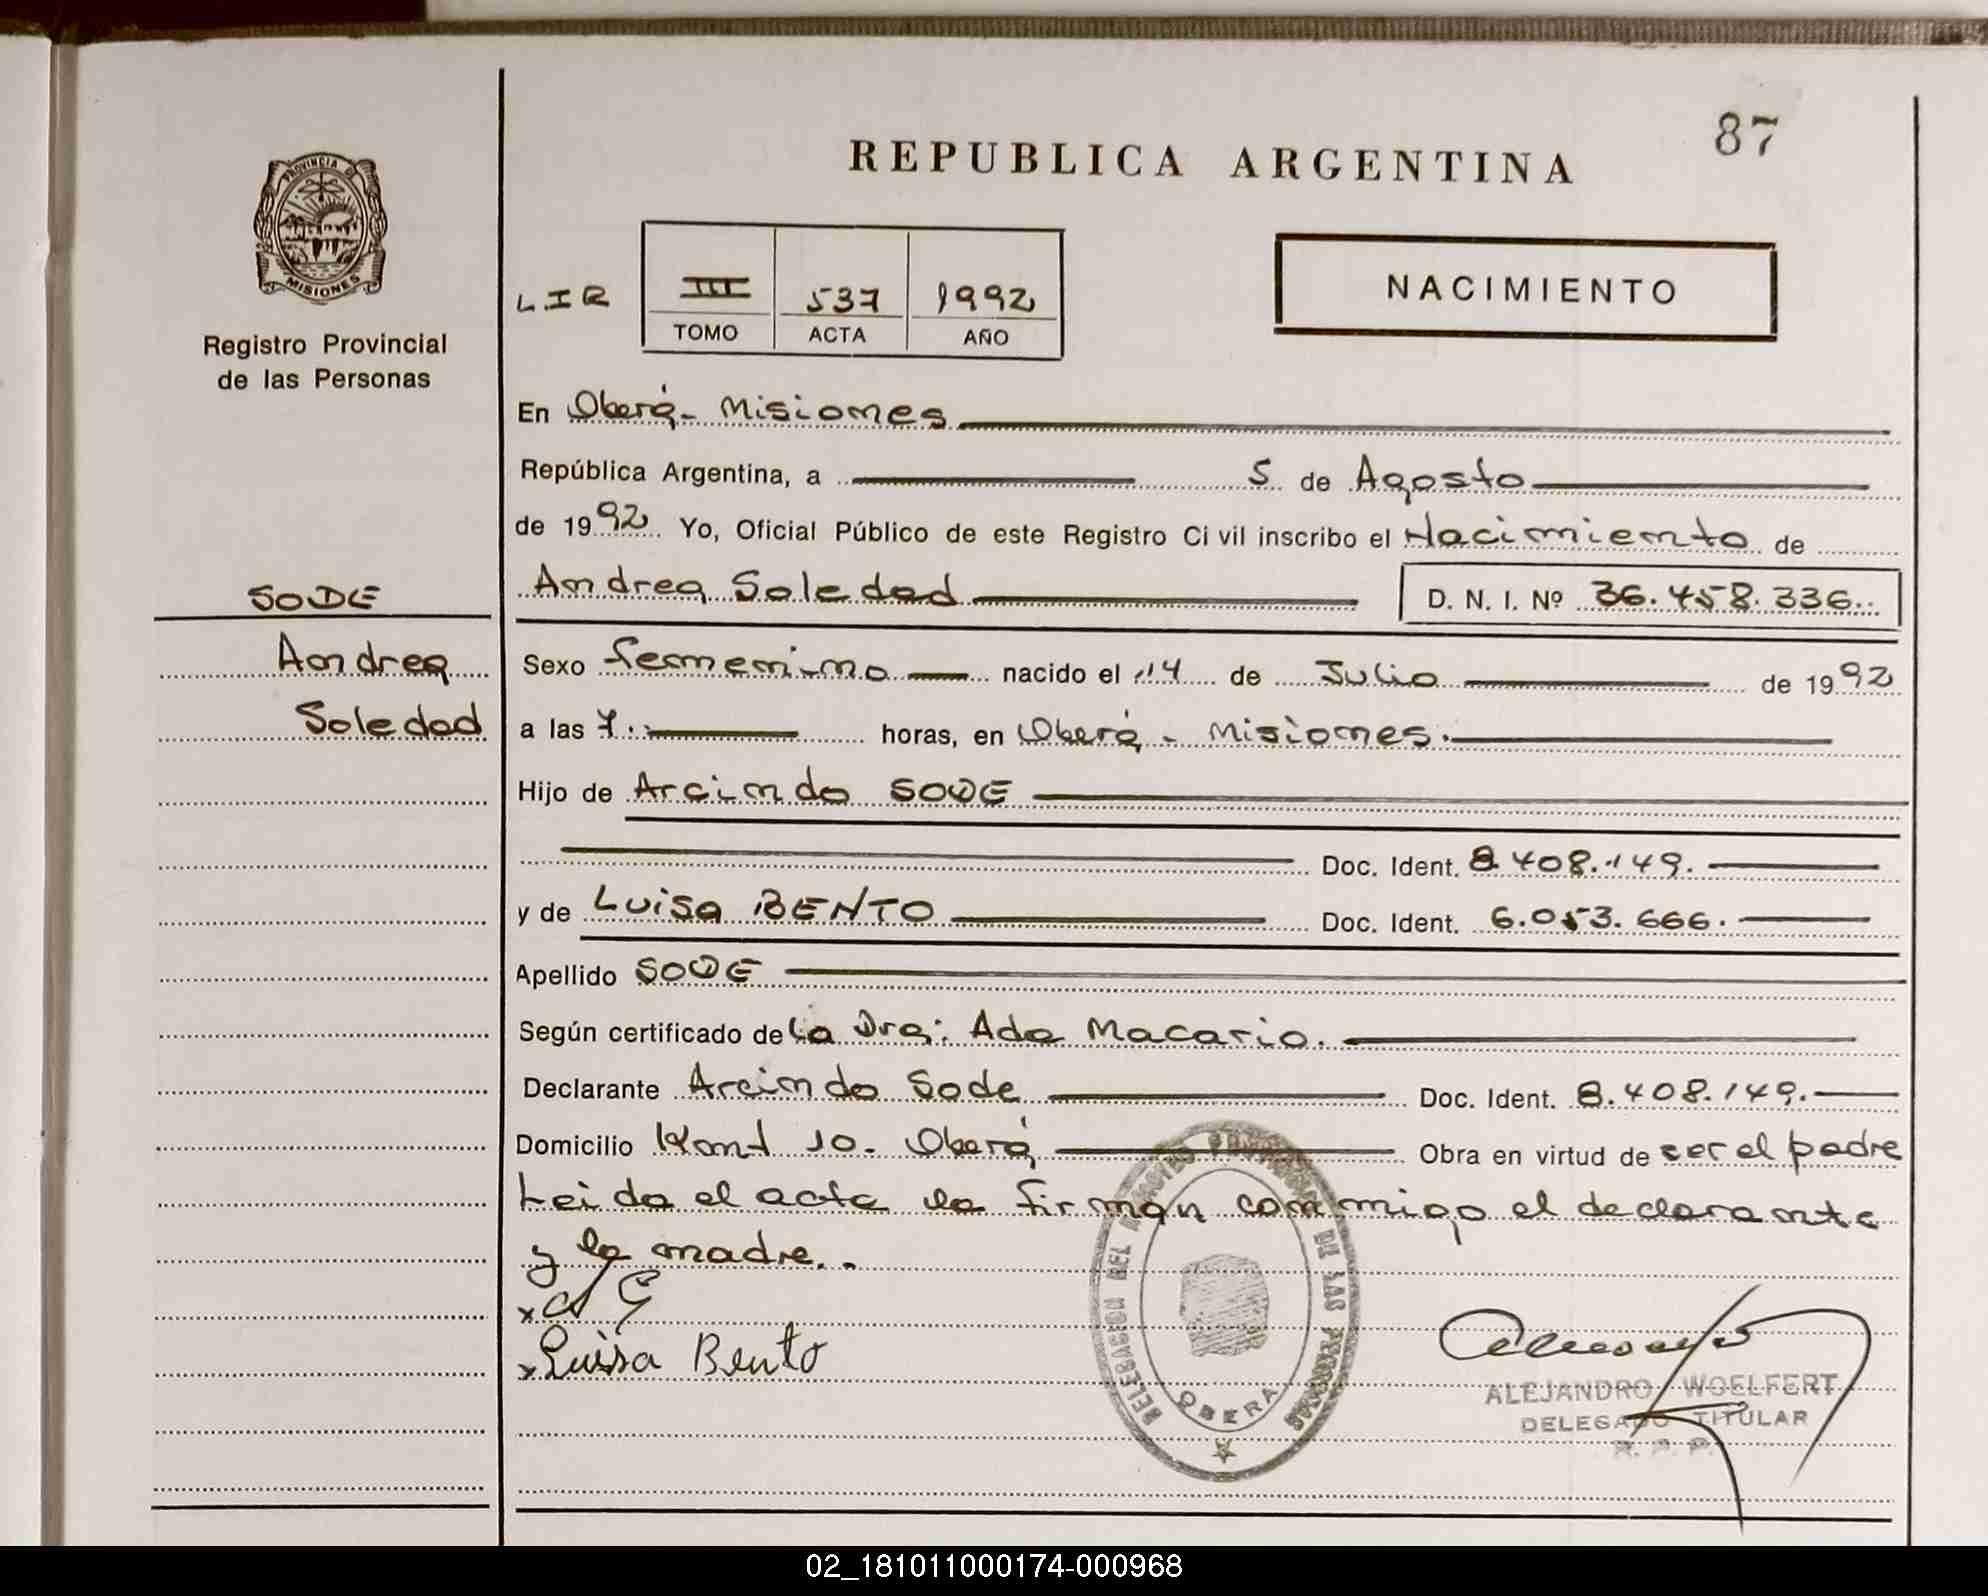 87
REPUBLICA ARGENTINA
PROVINCIA DE
MISIONES
Registro Provincial
de las Personas
L.I.R III 537 1992
TOMO ACTA AÑO
NACIMIENTO
En Oberá - Misiones
República Argentina, a 5 de Agosto
de 1992 Yo, Oficial Público de este Registro Civil inscribo el Nacimiento de
SODE
Andrea Soledad D. N. I. Nº 36.458.336.
Andrea
Sexo femenino nacido el 14 de Julio de 1992
Soledad
a las 7. horas, en Oberá - Misiones.
Hijo de Arcindo SODE
Doc. Ident. 8.408.149.
y de Luisa BENTO Doc. Ident. 6.053.666.
Apellido SODE
Según certificado de la Dra: Ada Macario.
Declarante Arcindo Sode Doc. Ident. 8.408.149.
Domicilio 10. Oberá Obra en virtud de ser el padre
Leida el acta la firman conmigo el declarante
y la madre..
x
x Luisa Bento
DELEGACION DEL REGISTRO PROVINCIAL DE LAS PERSONAS
OBERA
ALEJANDRO WOELFERT
DELEGADO TITULAR
R. P. P.
02_181011000174-000968